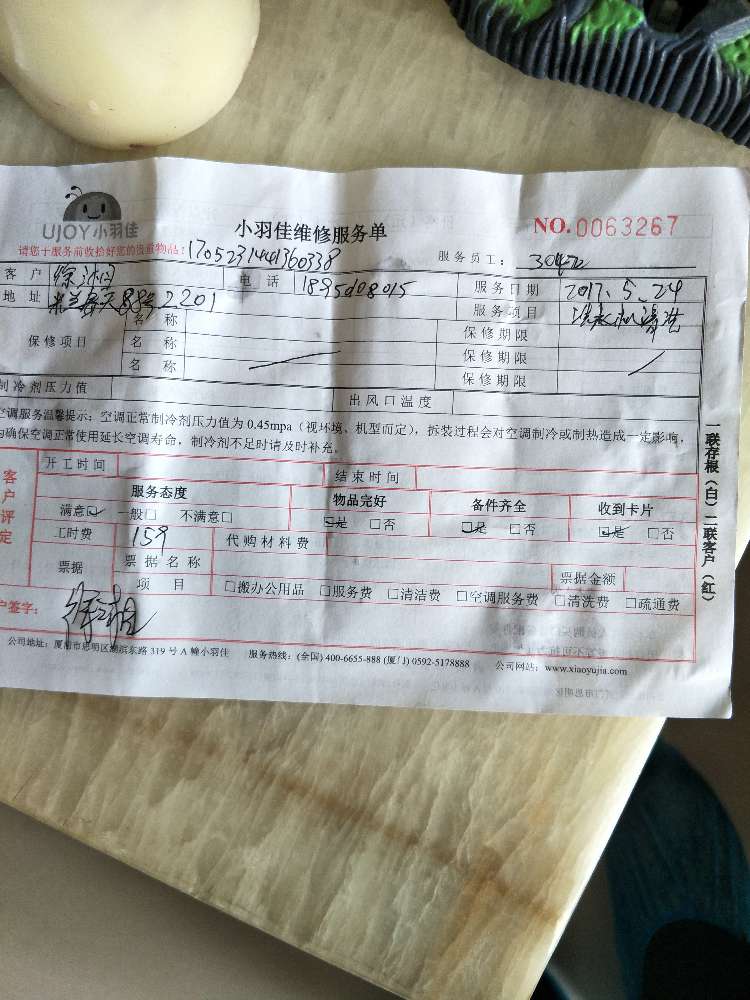 UJOY小羽佳
小羽佳维修服务单
NO.0063267
请您于服务前收拾好您的贵重物品:
1705231441360338
服务员工:
客户
电话
服务日期 2017.5.24
地址 2201
服务项目
保修项目
名称 保修期限
名称 保修期限
名称 保修期限
制冷剂压力值 出风口温度
空调服务温馨提示:空调正常制冷剂压力值为0.45mpa(视环境、机型而定),拆装过程会对空调制冷或制热造成一定影响,
为确保空调正常使用延长空调寿命,制冷剂不足时请及时补充。
客户评定
开工时间 结束时间
服务态度 物品完好 备件齐全 收到卡片
满意☑ 一般□ 不满意□ ☑是 □否 ☑是 □否 ☑是 □否
工时费 159 代购材料费
票据 票据名称 票据金额
项目 □搬办公用品 □服务费 □清洁费 □空调服务费 □清洗费 □疏通费
客户签字:
公司地址:厦门市思明区湖滨东路319号A幢小羽佳 服务热线:(全国)400-6655-888 (厦门) 0592-5178888 公司网站:www.xiaoyujia.com
一联存根(白) 二联客户(红)